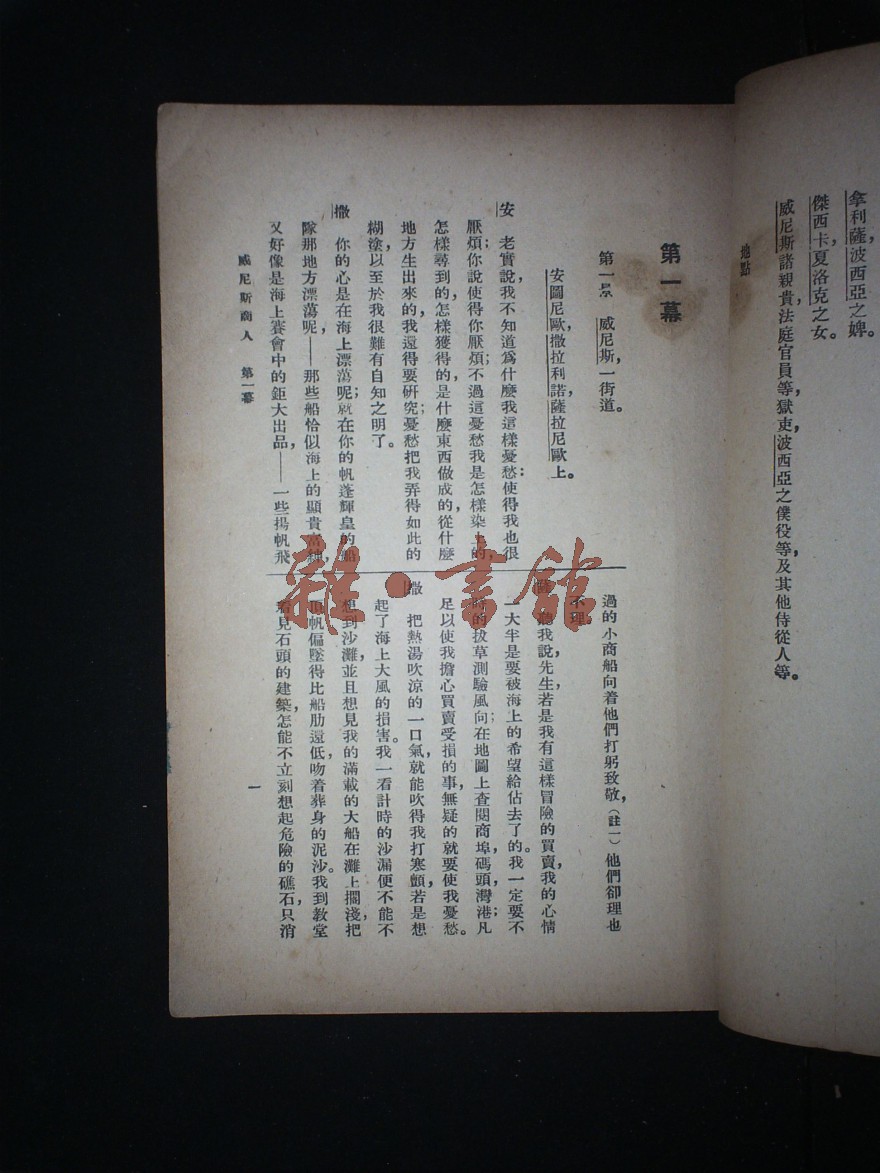 拿利薩，波西亞之婢。
傑西卡，夏洛克之女。
威尼斯諸親貴，法庭官員等，獄吏，波西亞之僕役等，及其他侍從人等。
地點
第一幕
第一景　威尼斯，一街道。
安圖尼歐，撒拉利諾，薩拉尼歐上。
安　老實說，我不知道爲什麼我這樣憂愁：使得我也很
厭煩；你說使得你厭煩；不過這憂愁我是怎樣染上的，
怎樣尋到的，怎樣獲得的，是什麼東西做成的，從什麼
地方生出來的，我還得要研究；憂愁把我弄得如此的
糊塗，以至於我很難有自知之明了。
撒　你的心是在海上漂蕩呢；就在你的帆蓬輝皇的船
隊那地方漂蕩呢，——那些船恰似海上的顯貴富紳，
又好像是海上賽會中的鉅大出品，——一些揚帆飛
過的小商船向着他們打躬致敬，（註一）他們卻理也
不理。
薩　聽我說，先生，若是我有這樣冒險的買賣，我的心情
一大半是要被海上的希望給佔去了的。我一定要不
時的拔草測驗風向；在地圖上查閱商埠，碼頭，灣港；凡
足以使我擔心買賣受損的事，無疑的就要使我憂愁。
撒　把熱湯吹涼的一口氣，就能吹得我打寒顫，若是想
起了海上大風的損害。我一看計時的沙漏便不能不
想到沙灘，並且想見我的滿載的大船在灘上擱淺，把
頂帆偏墜得比船肋還低，吻着葬身的泥沙。我到教堂
看見石頭的建築，怎能不立刻想起危險的礁石，只消
威尼斯商人　第一幕
一
雜·書館